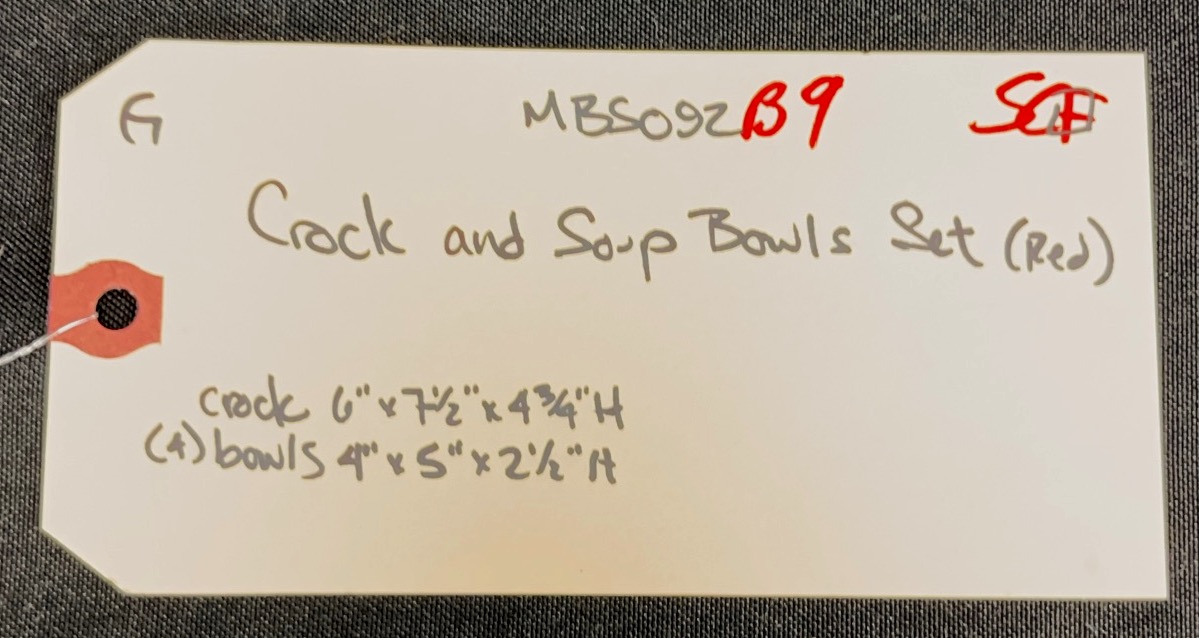 G MBS092B9 SCF
Crock and Soup Bowls Set (Red)
crock 6" x 7½" x 4¾" H
(4) bowls 4" x 5" x 2½" H